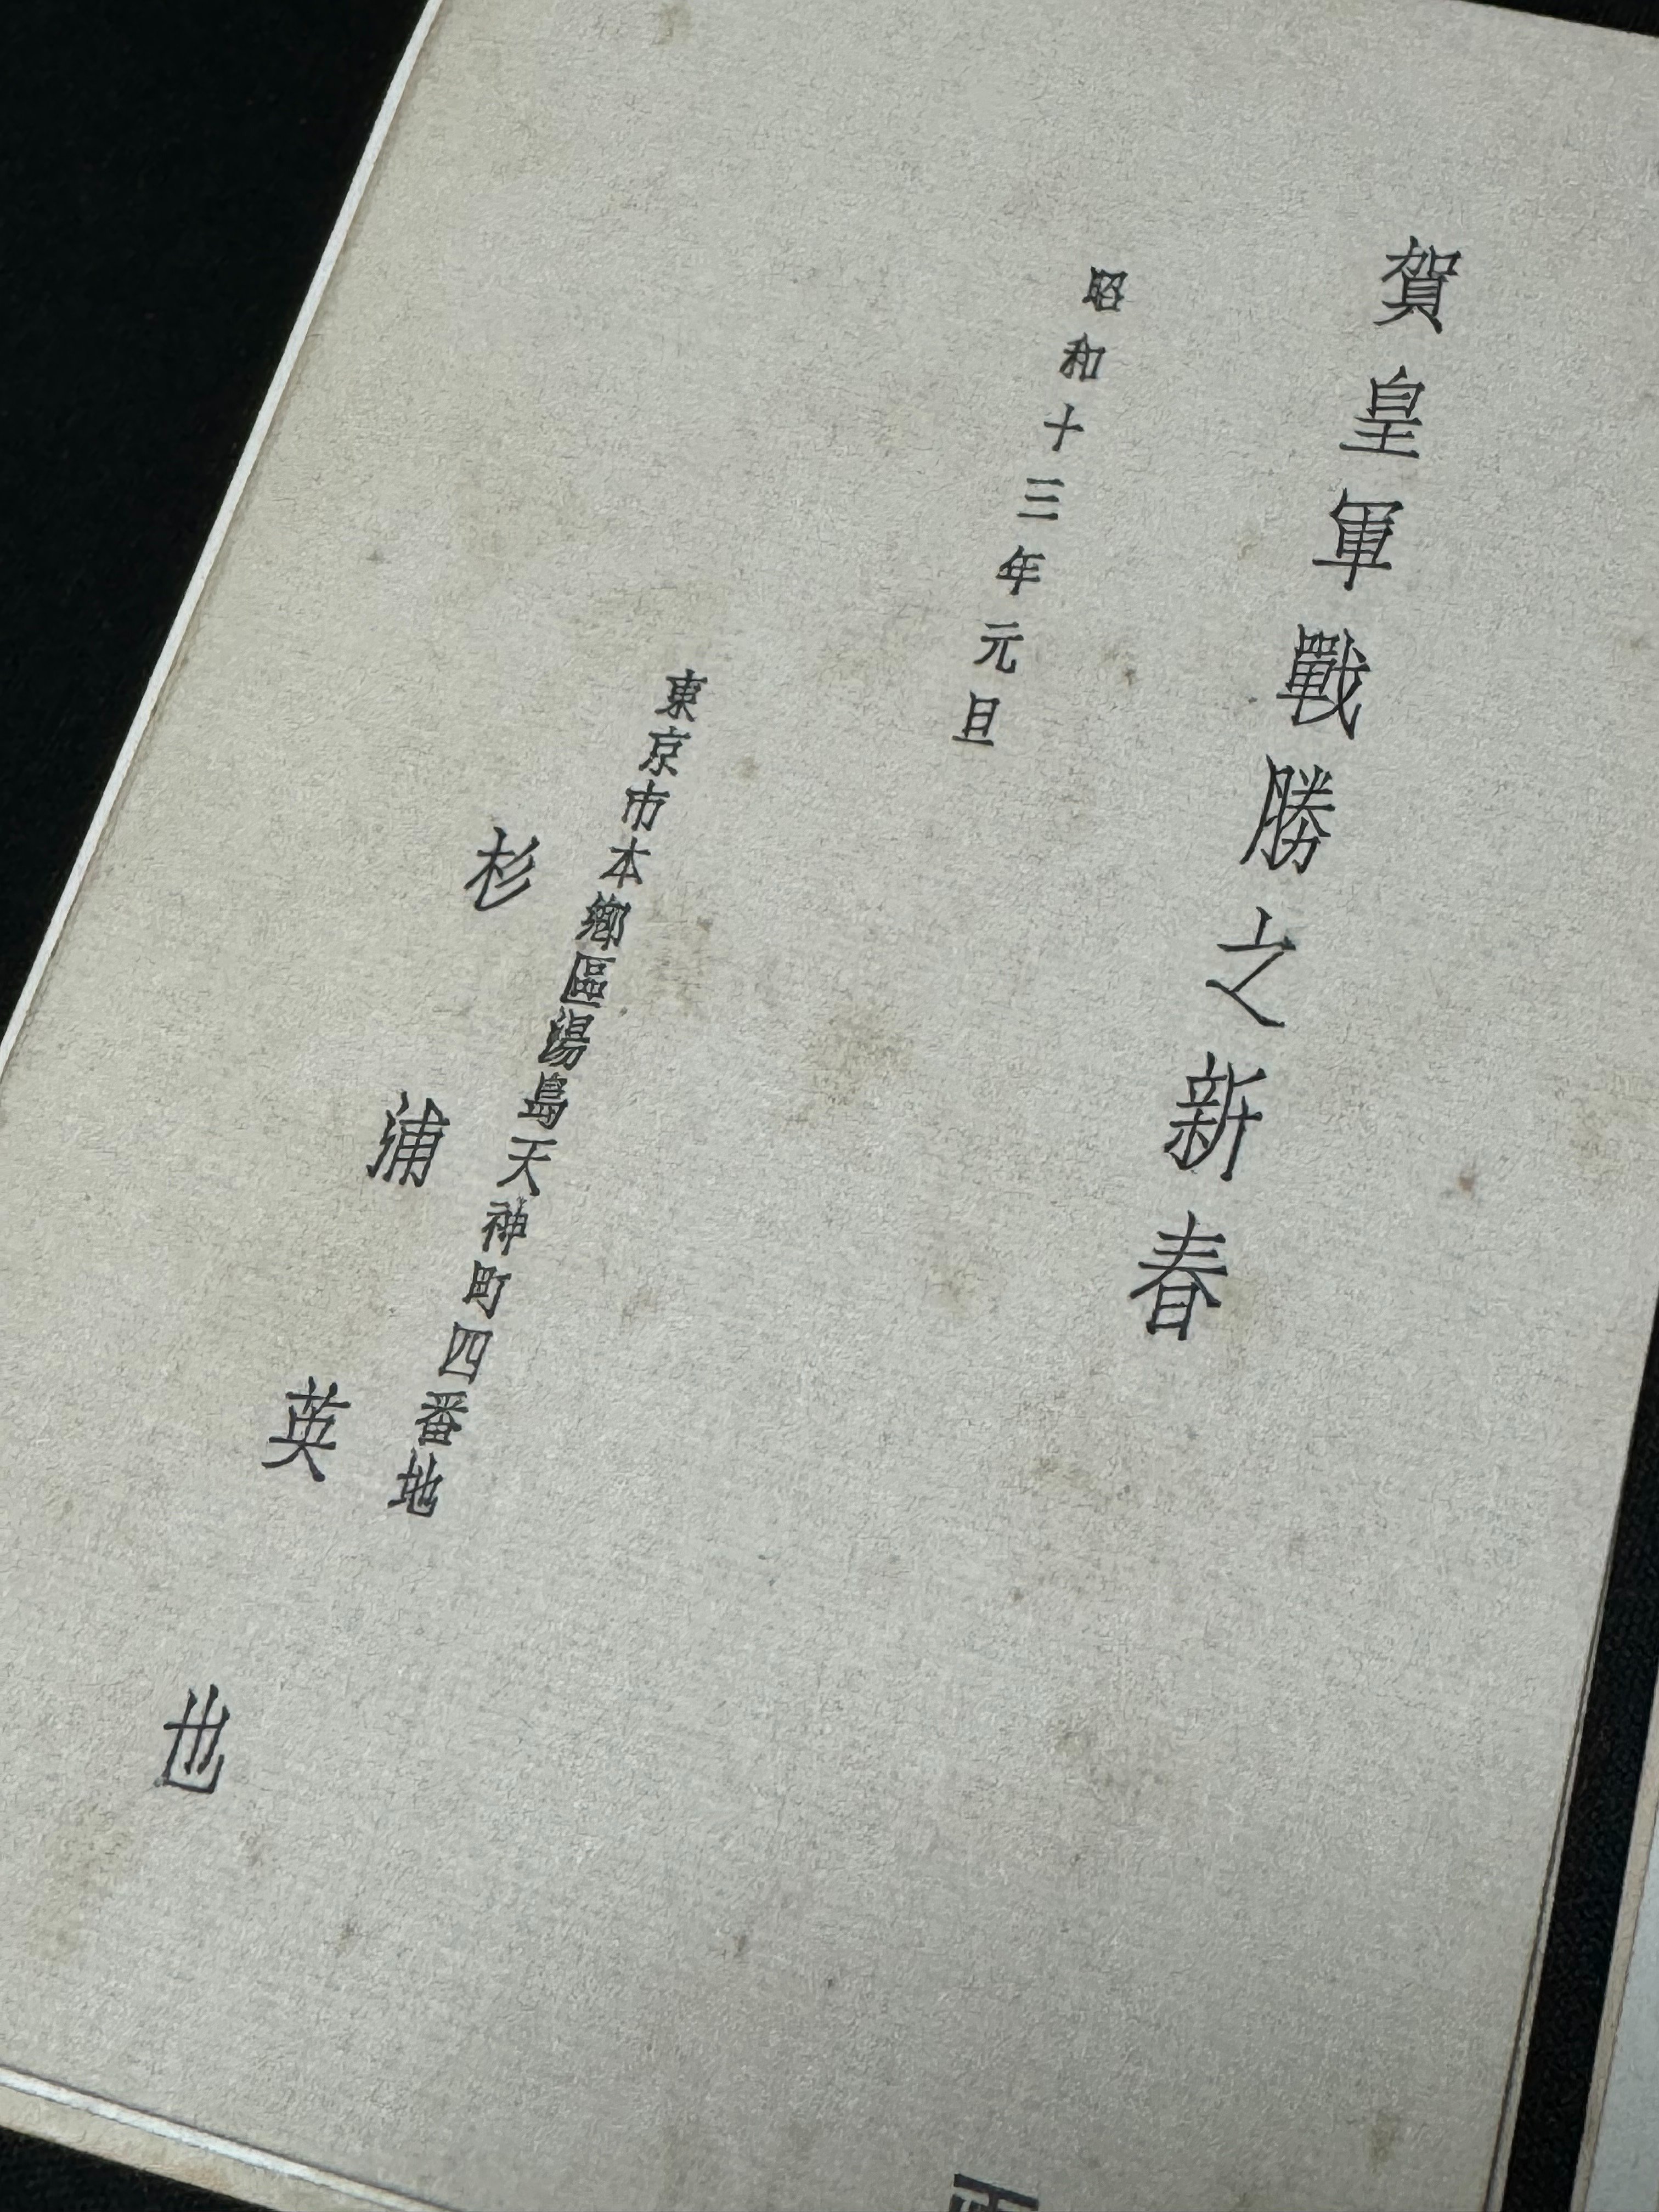 賀皇軍戰勝之新春
昭和十三年元旦
東京市本鄕區湯島天神町四番地
杉浦英也